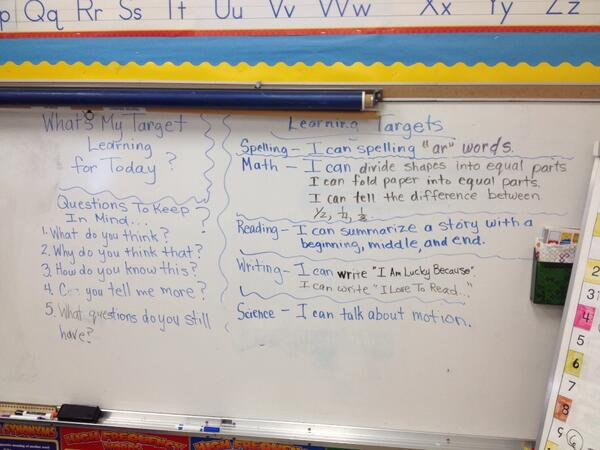 p Qq Rr Ss Tt Uu Vv Ww Xx Yy Zz
What's My Target
Learning
for Today?
Questions To Keep
In Mind...?
1. What do you think?
2. Why do you think that?
3. How do you know this?
4. Can you tell me more?
5. What questions do you still
have?
Learning Targets
Spelling - I can spelling "ar" words.
Math - I can divide shapes into equal parts
I can fold paper into equal parts.
I can tell the difference between
1/2, 1/4,
Reading - I can summarize a story with a
beginning, middle, and end.
Writing - I can write "I Am Lucky Because".
I can write "I Love To Read..."
Science - I can talk about motion.
2
31
4
5
6
7
8
9
SYNONYMS
HIGH FREQUENCY
HIGH FREQUENCY